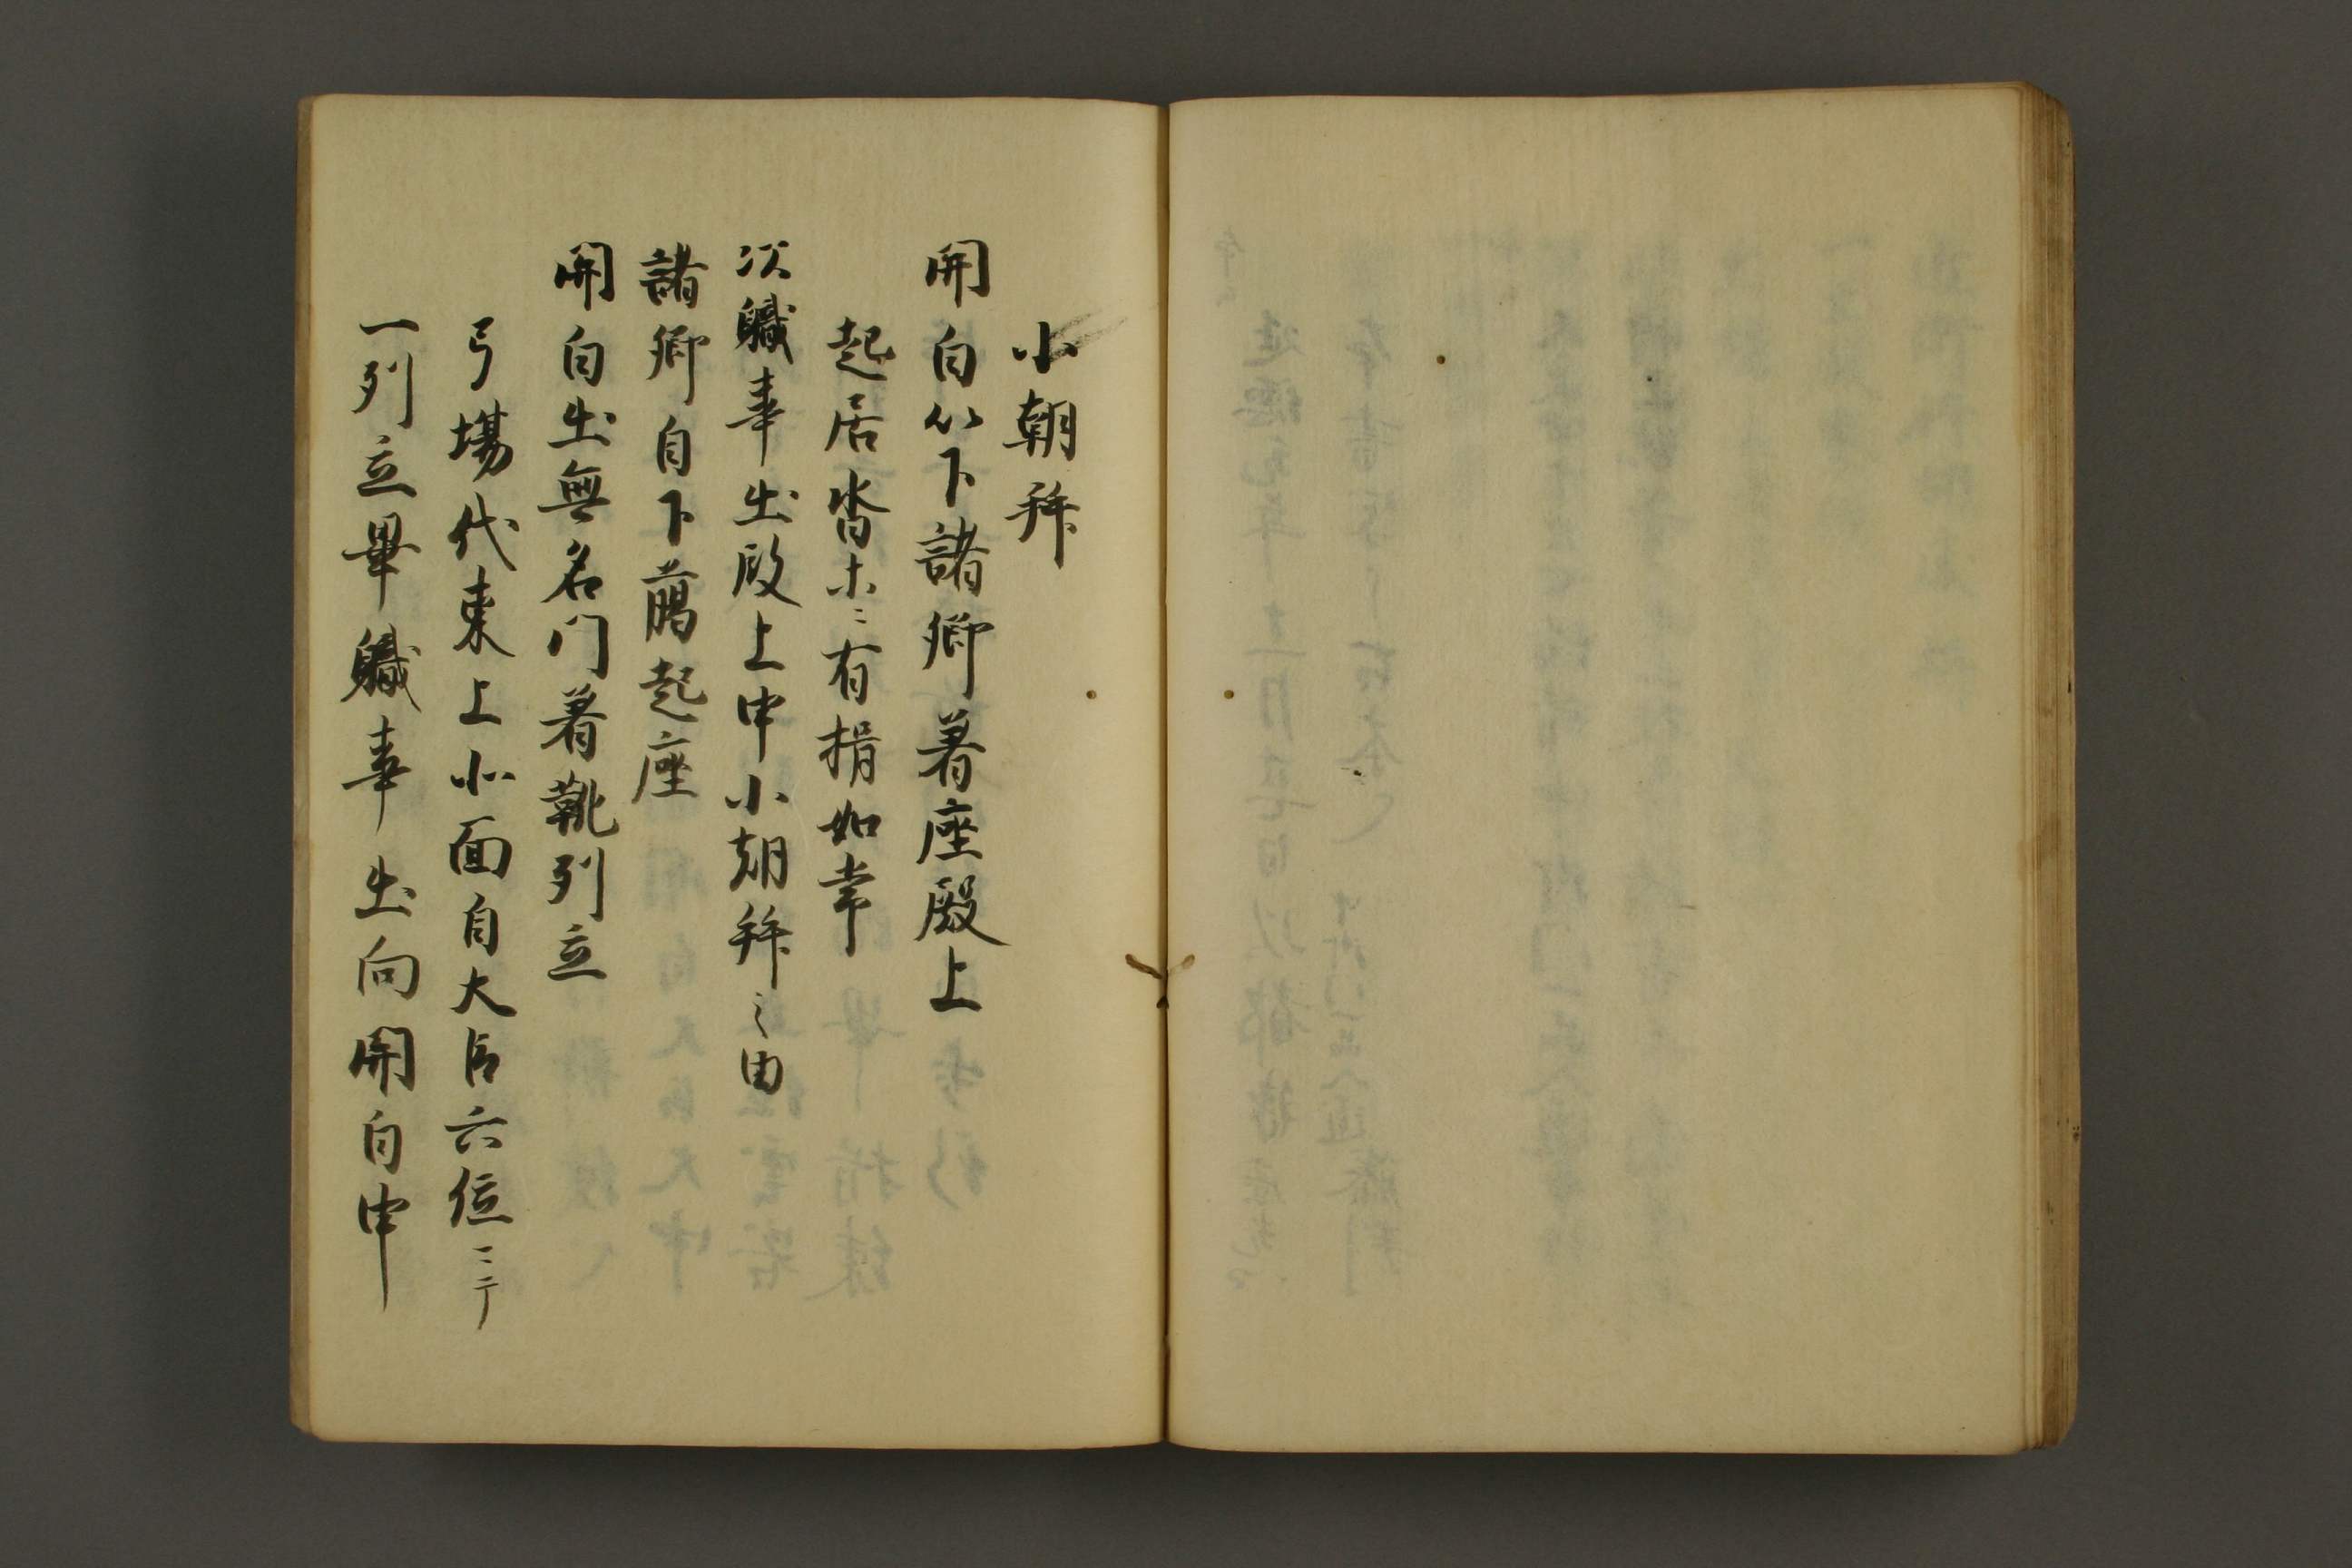 小朝拝
関白以下諸卿著座殿上
起居沓ホ〻有揖如常
次職事出殿上申小朝拝之由
諸卿自下﨟起座
関白出無名門著靴列立
弓場代東上北面自大臣六位〻
一列立畢職事出向関白申